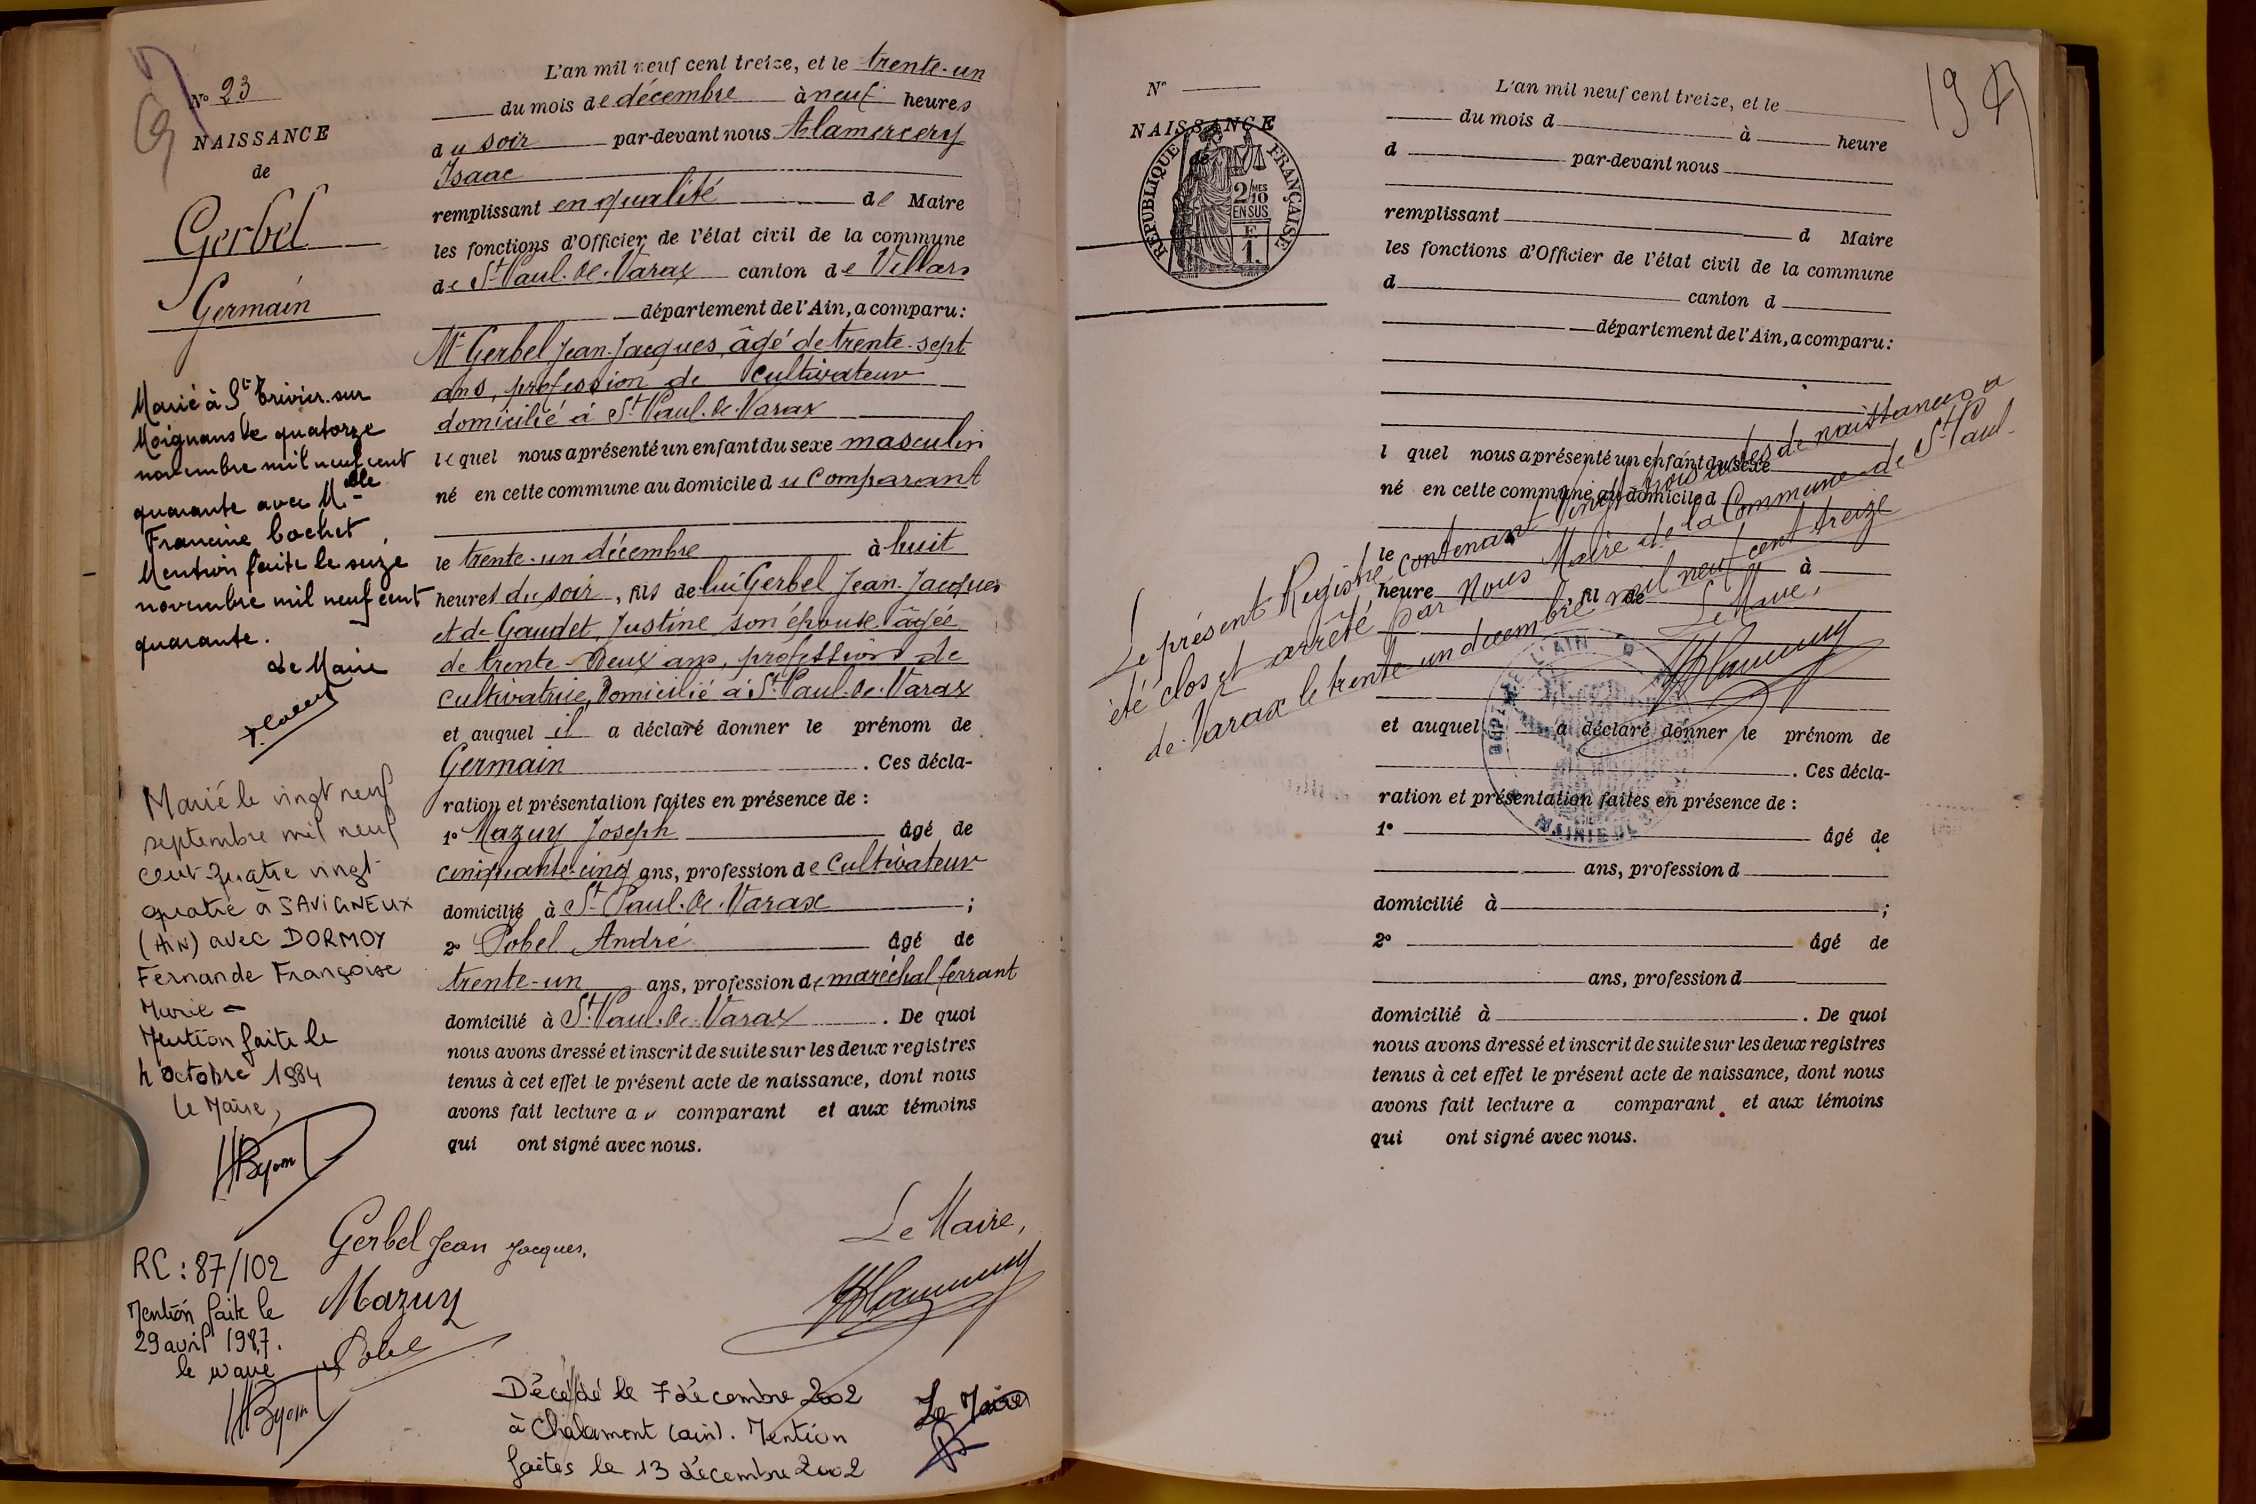 N° 23
NAISSANCE
de
Gerbel
Germain
Marié à St Trivier sur
Moignans le quatorze
novembre mil neuf cent
quarante avec Melle
Francine Cochet
Mention faite le seize
novembre mil neuf cent
quarante.
Le Maire
Marié le vingt neuf
septembre mil neuf
cent quatre vingt
quatre à SAVIGNEUX
(AIN) avec DORMOY
Fernande Françoise
Marie -
Mention faite le
4 octobre 1984
Le Maire,
RC : 87/102
Mention faite le
29 avril 1987.
le maire
L'an mil neuf cent treize, et le trente-un
du mois de décembre à neuf heures
du soir par-devant nous Alamercery
Isaac
remplissant en qualité de Maire
les fonctions d'Officier de l'état civil de la commune
de St Paul-de-Varax canton de Villars
département de l'Ain, a comparu:
Mr Gerbel Jean-Jacques, âgé de trente-sept
ans, profession de cultivateur
domicilié à St Paul-de-Varax
lequel nous a présenté un enfant du sexe masculin
né en cette commune au domicile du comparant
le trente-un décembre à huit
heures du soir, fils de lui Gerbel Jean-Jacques
et de Gaudet, Justine son épouse âgée
de trente-deux ans, profession de
cultivatrice, domicilié à St Paul-de-Varax
et auquel il a déclaré donner le prénom de
Germain . Ces décla-
ration et présentation faites en présence de :
1° Mazuy Joseph âgé de
cinquante-cinq ans, profession de cultivateur
domicilié à St Paul-de-Varax ;
2° Pobel André âgé de
trente-un ans, profession de maréchal ferrant
domicilié à St Paul-de-Varax . De quoi
nous avons dressé et inscrit de suite sur les deux registres
tenus à cet effet le présent acte de naissance, dont nous
avons fait lecture au comparant et aux témoins
qui ont signé avec nous.
Le Maire,
Gerbel Jean Jacques,
Mazuy
Pobel
Décédé le 7 décembre 2002
à Chalamont (ain). Mention
faites le 13 décembre 2002
Le Maire
N°
NAISSANCE
de
RÉPUBLIQUE FRANÇAISE
2/10 MES
EN SUS
F.
1.
19
L'an mil neuf cent treize, et le
du mois d à heure
d par-devant nous
remplissant d Maire
les fonctions d'Officier de l'état civil de la commune
d canton d
département de l'Ain, a comparu:
l quel nous a présenté un enfant du sexe
né en cette commune au domicile d
le à
heure , fil de
et auquel a déclaré donner le prénom de
. Ces décla-
ration et présentation faites en présence de :
1° âgé de
ans, profession d
domicilié à ;
2° âgé de
ans, profession d
domicilié à . De quoi
nous avons dressé et inscrit de suite sur les deux registres
tenus à cet effet le présent acte de naissance, dont nous
avons fait lecture a comparant et aux témoins
qui ont signé avec nous.
Le présent Registre contenant vingt-trois actes de naissances a
été clos et arrêté par Nous Maire de la Commune de St Paul-
de-Varax le trente un décembre mil neuf cent treize
Le Maire,